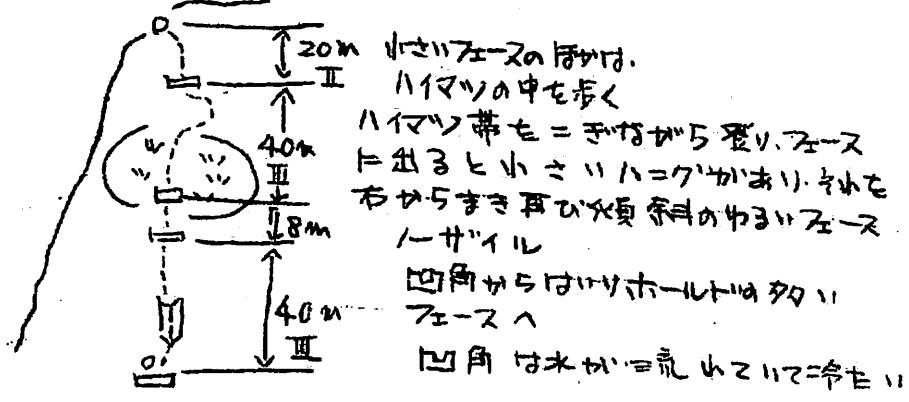 20m
II
小さいフェースのほかは、
ハイマツの中を歩く
40m
III
ハイマツ帯をこぎながら登り、フェース
に出ると小さいハングがあり、それを
右からまき再び傾斜のゆるいフェース
8m
ノーザイル
40m
III
凹角からはいりホールドの多い
フェースへ
凹角は水が流れていて冷たい